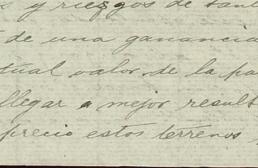 y riesgos de
de una ganancia
tual valor de la pa
llegar a mejor result
precio estos terrenos